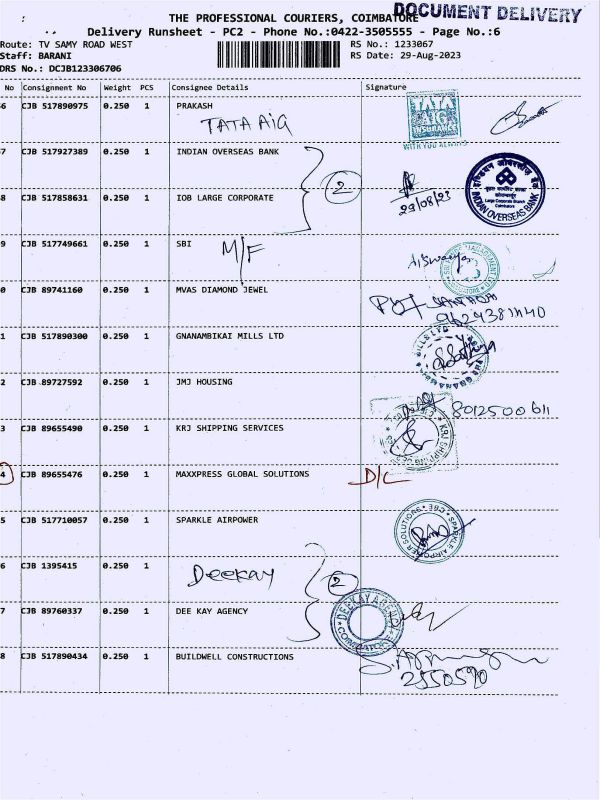 DOCUMENT DELIVERY
THE PROFESSIONAL COURIERS, COIMBATORE
Delivery Runsheet - PC2 - Phone No.:0422-3505555 - Page No.:6
Route: TV SAMY ROAD WEST RS No.: 1233067
Staff: BARANI RS Date: 29-Aug-2023
DRS No.: DCJB123306706
No Consignment No Weight PCS Consignee Details Signature
6 CJB 517890975 0.250 1 PRAKASH
TATA AIG
TATA
AIG
INSURANCE
WITH YOU ALWAYS
7 CJB 517927389 0.250 1 INDIAN OVERSEAS BANK
2
8 CJB 517858631 0.250 1 IOB LARGE CORPORATE
29/08/23
इण्डियन ओवरसीज़ बैंक
Large Corporate Branch
Coimbatore
INDIAN OVERSEAS BANK
9 CJB 517749661 0.250 1 SBI
M/F
0 CJB 89741160 0.250 1 MVAS DIAMOND JEWEL
1 CJB 517890300 0.250 1 GNANAMBIKAI MILLS LTD
MILLS LTD
2 CJB 89727592 0.250 1 JMJ HOUSING
8012500611
3 CJB 89655490 0.250 1 KRJ SHIPPING SERVICES
KRJ SHIPPING
4 CJB 89655476 0.250 1 MAXXPRESS GLOBAL SOLUTIONS
D/C
5 CJB 517710057 0.250 1 SPARKLE AIRPOWER
SPARKLE AIRPOWER SOLUTIONS
CBE
6 CJB 1395415 0.250 1
Deekay
2
7 CJB 89760337 0.250 1 DEE KAY AGENCY
DEEKAY AGENCY
8 CJB 517890434 0.250 1 BUILDWELL CONSTRUCTIONS
2550590